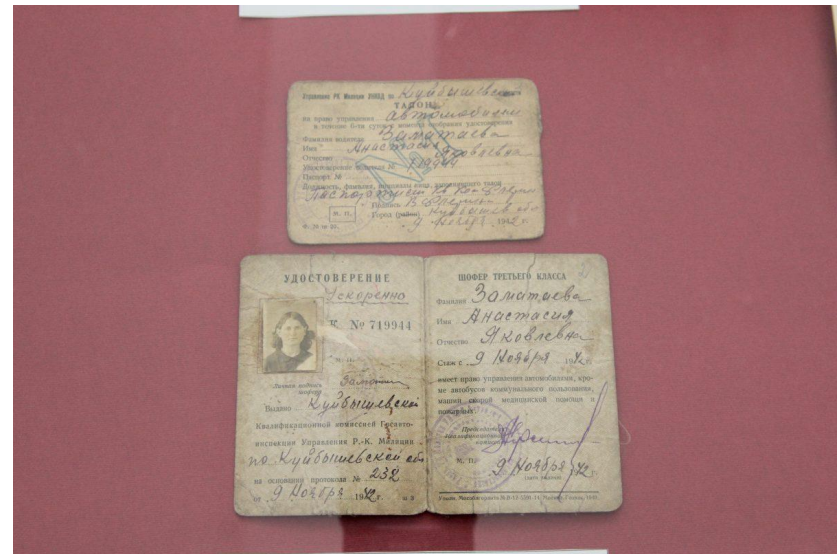 Управление РК Милиции УНКВД по Куйбышевской
ТАЛОН
на право управления автомобилем
в течение 6-ти суток с момента отобрания удостоверения
Фамилия водителя Заматаева
Имя Анастасия
Отчество Яковлевна
Удостоверение водителя № 719944
Паспорт №
Должность, фамилия, инициалы лица, выдавшего талон
Подпись
М. П.
Город (район) Куйбышев обл
9 Ноября 1942 г.
УДОСТОВЕРЕНИЕ
Ускоренно
К № 719944
Личная подпись
шофера
Выдано Куйбышевской
Квалификационной комиссией Госавто-
инспекции Управления Р.-К. Милиции
по Куйбышевской обл
на основании протокола № 232
от 9 Ноября 1942 г.
ШОФЕР ТРЕТЬЕГО КЛАССА
Фамилия Заматаева
Имя Анастасия
Отчество Яковлевна
Стаж с 9 Ноября 1942 г.
имеет право управления автомобилями, кро-
ме автобусов коммунального пользования,
машин скорой медицинской помощи и
пожарных.
Председатель
квалификационной
комиссии
М. П.
9 Ноября 42 г.
(дата выдачи)